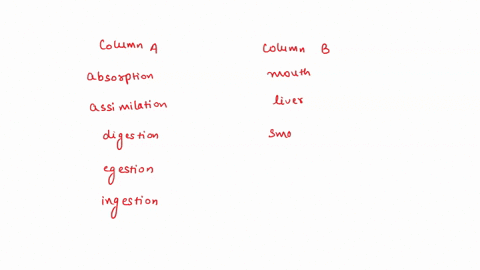 Column A Column B
absorption mouth
assimilation liver
digestion smo
egestion
ingestion